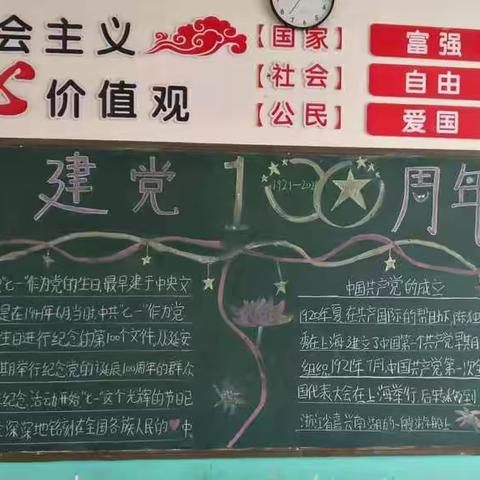 会主义
价值观
【国家】
富强
【社会】
自由
【公民】
爱国
建党100周年
1921-20
七一"作为党的生日,最早建于中央文
是在1941年6月当时中共"七一"作为党
生日进行纪念的第100个文件,从延安
期举行纪念党的诞辰100周年的群众
纪念活动开始"七一"这个光辉的节日已
深深地铭刻在全国各族人民的 中
中国共产党的成立
1920年夏在共产国际的帮助下,陈独
秀在上海建立了中国第一个共产党早期
组织1921年7月,中国共产党第一次全
国代表大会在上海举行后转移到
浙江省嘉兴南湖的一艘游船上